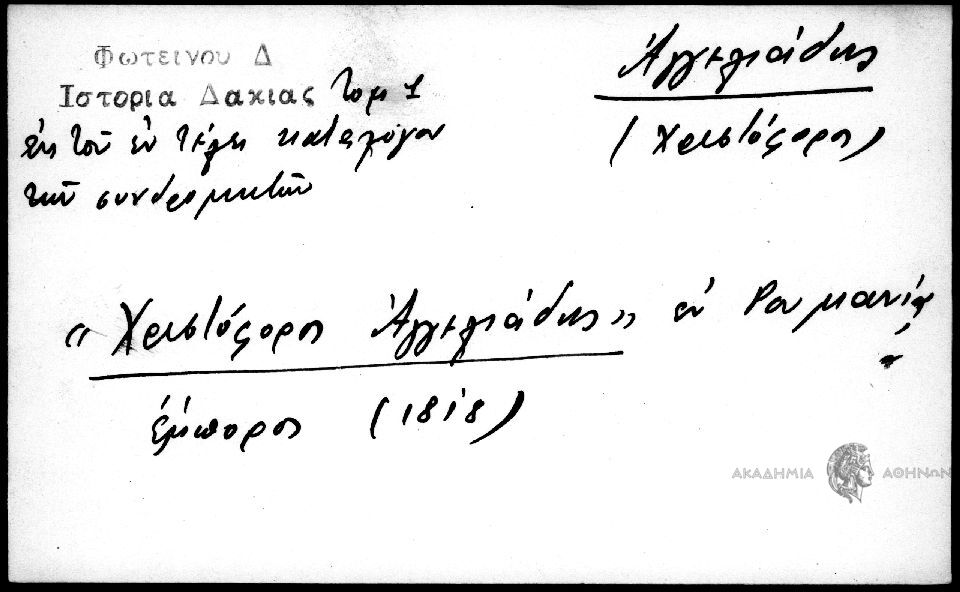 Φωτεινου Δ
Ιστορια Δακιας τομ 1
εις τον εν τέλει κατάλογον
των συνδρομητών
Ἀγγελιάδης
(Χριστόφορος)
"Χριστόφορος Ἀγγελιάδης" εν Ρουμανίᾳ
ἔμπορος (1818)
ΑΚΑΔΗΜΙΑ ΑΘΗΝΩΝ